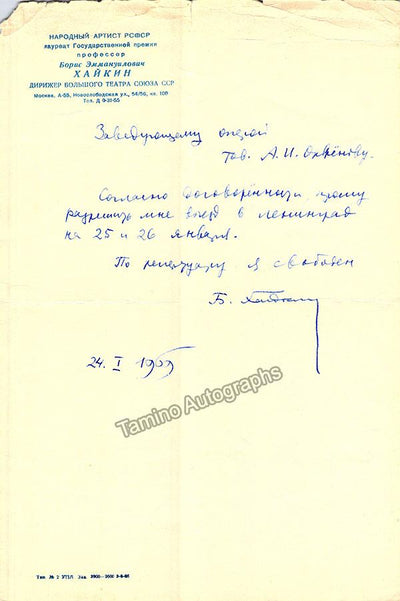 НАРОДНЫЙ АРТИСТ РСФСР
лауреат Государственной премии
профессор
Борис Эммануилович
ХАЙКИН
ДИРИЖЕР БОЛЬШОГО ТЕАТРА СОЮЗА ССР
Москва, А-55, Новослободская ул., 54/56, кв. 100
Тел. Д 0-31-55
Заведующему оперой
тов. А. И. Орфёнову.
Согласно договорённости, прошу
разрешить мне выезд в Ленинград
на 25 и 26 января.
По репертуару я свободен
Б. Хайкин
24. I 1969
Tamino Autographs
Тип. № 2 УПЛ Зак.